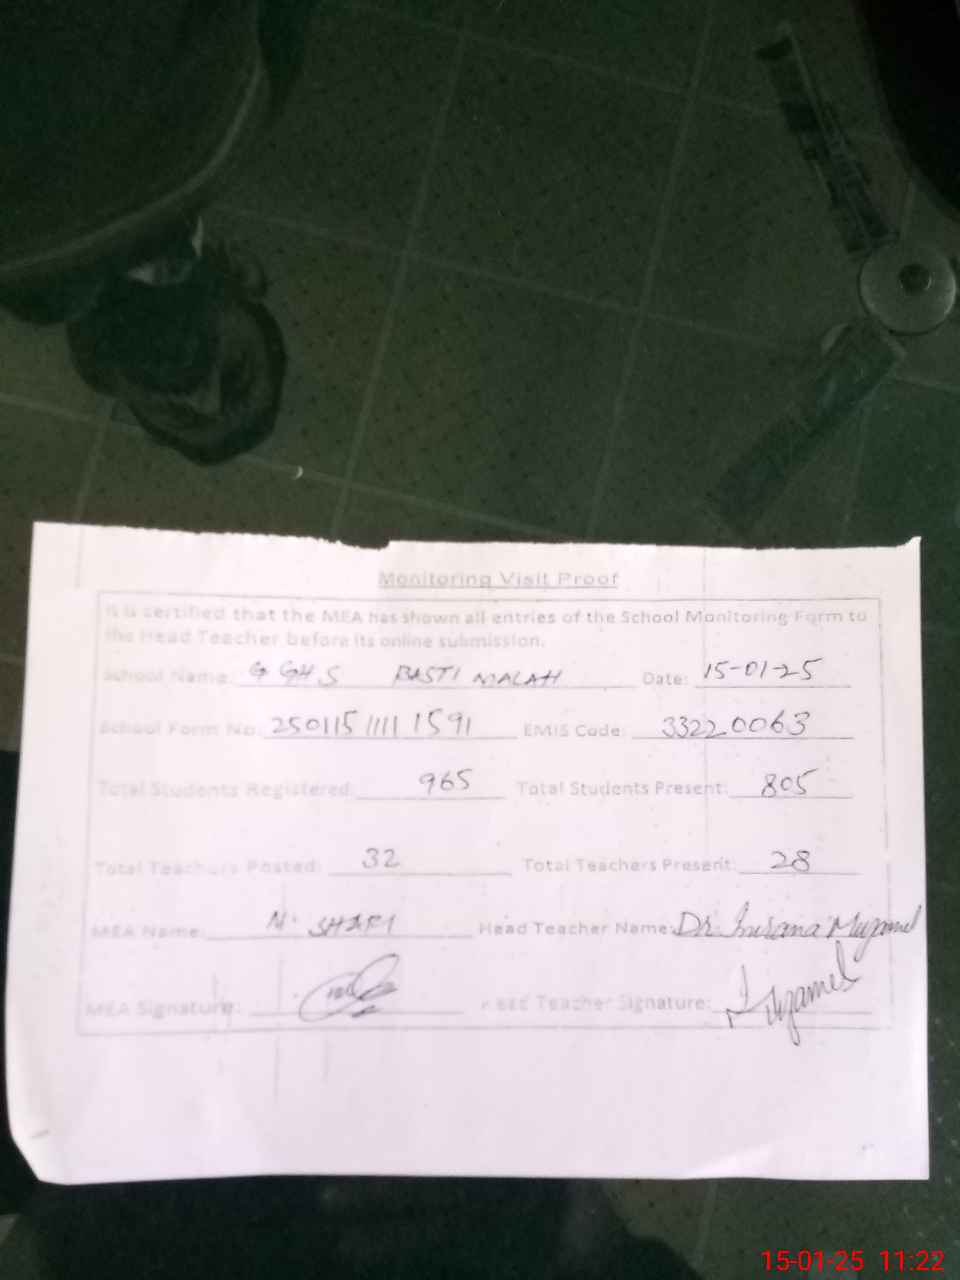 Monitoring Visit Proof
It is certified that the MEA has shown all entries of the School Monitoring Form to
the Head Teacher before its online submission.
School Name: G GHS BASTI MALAH Date: 15-01-25
School Form No: 250115 11111 1591 EMIS Code: 33220063
Total Students Registered: 965 Total Students Present: 805
Total Teachers Posted: 32 Total Teachers Present: 28
MEA Name: M. SHAFI Head Teacher Name: Dr. Muzamel
MEA Signature: Head Teacher Signature: Muzamel
15-01-25 11:22